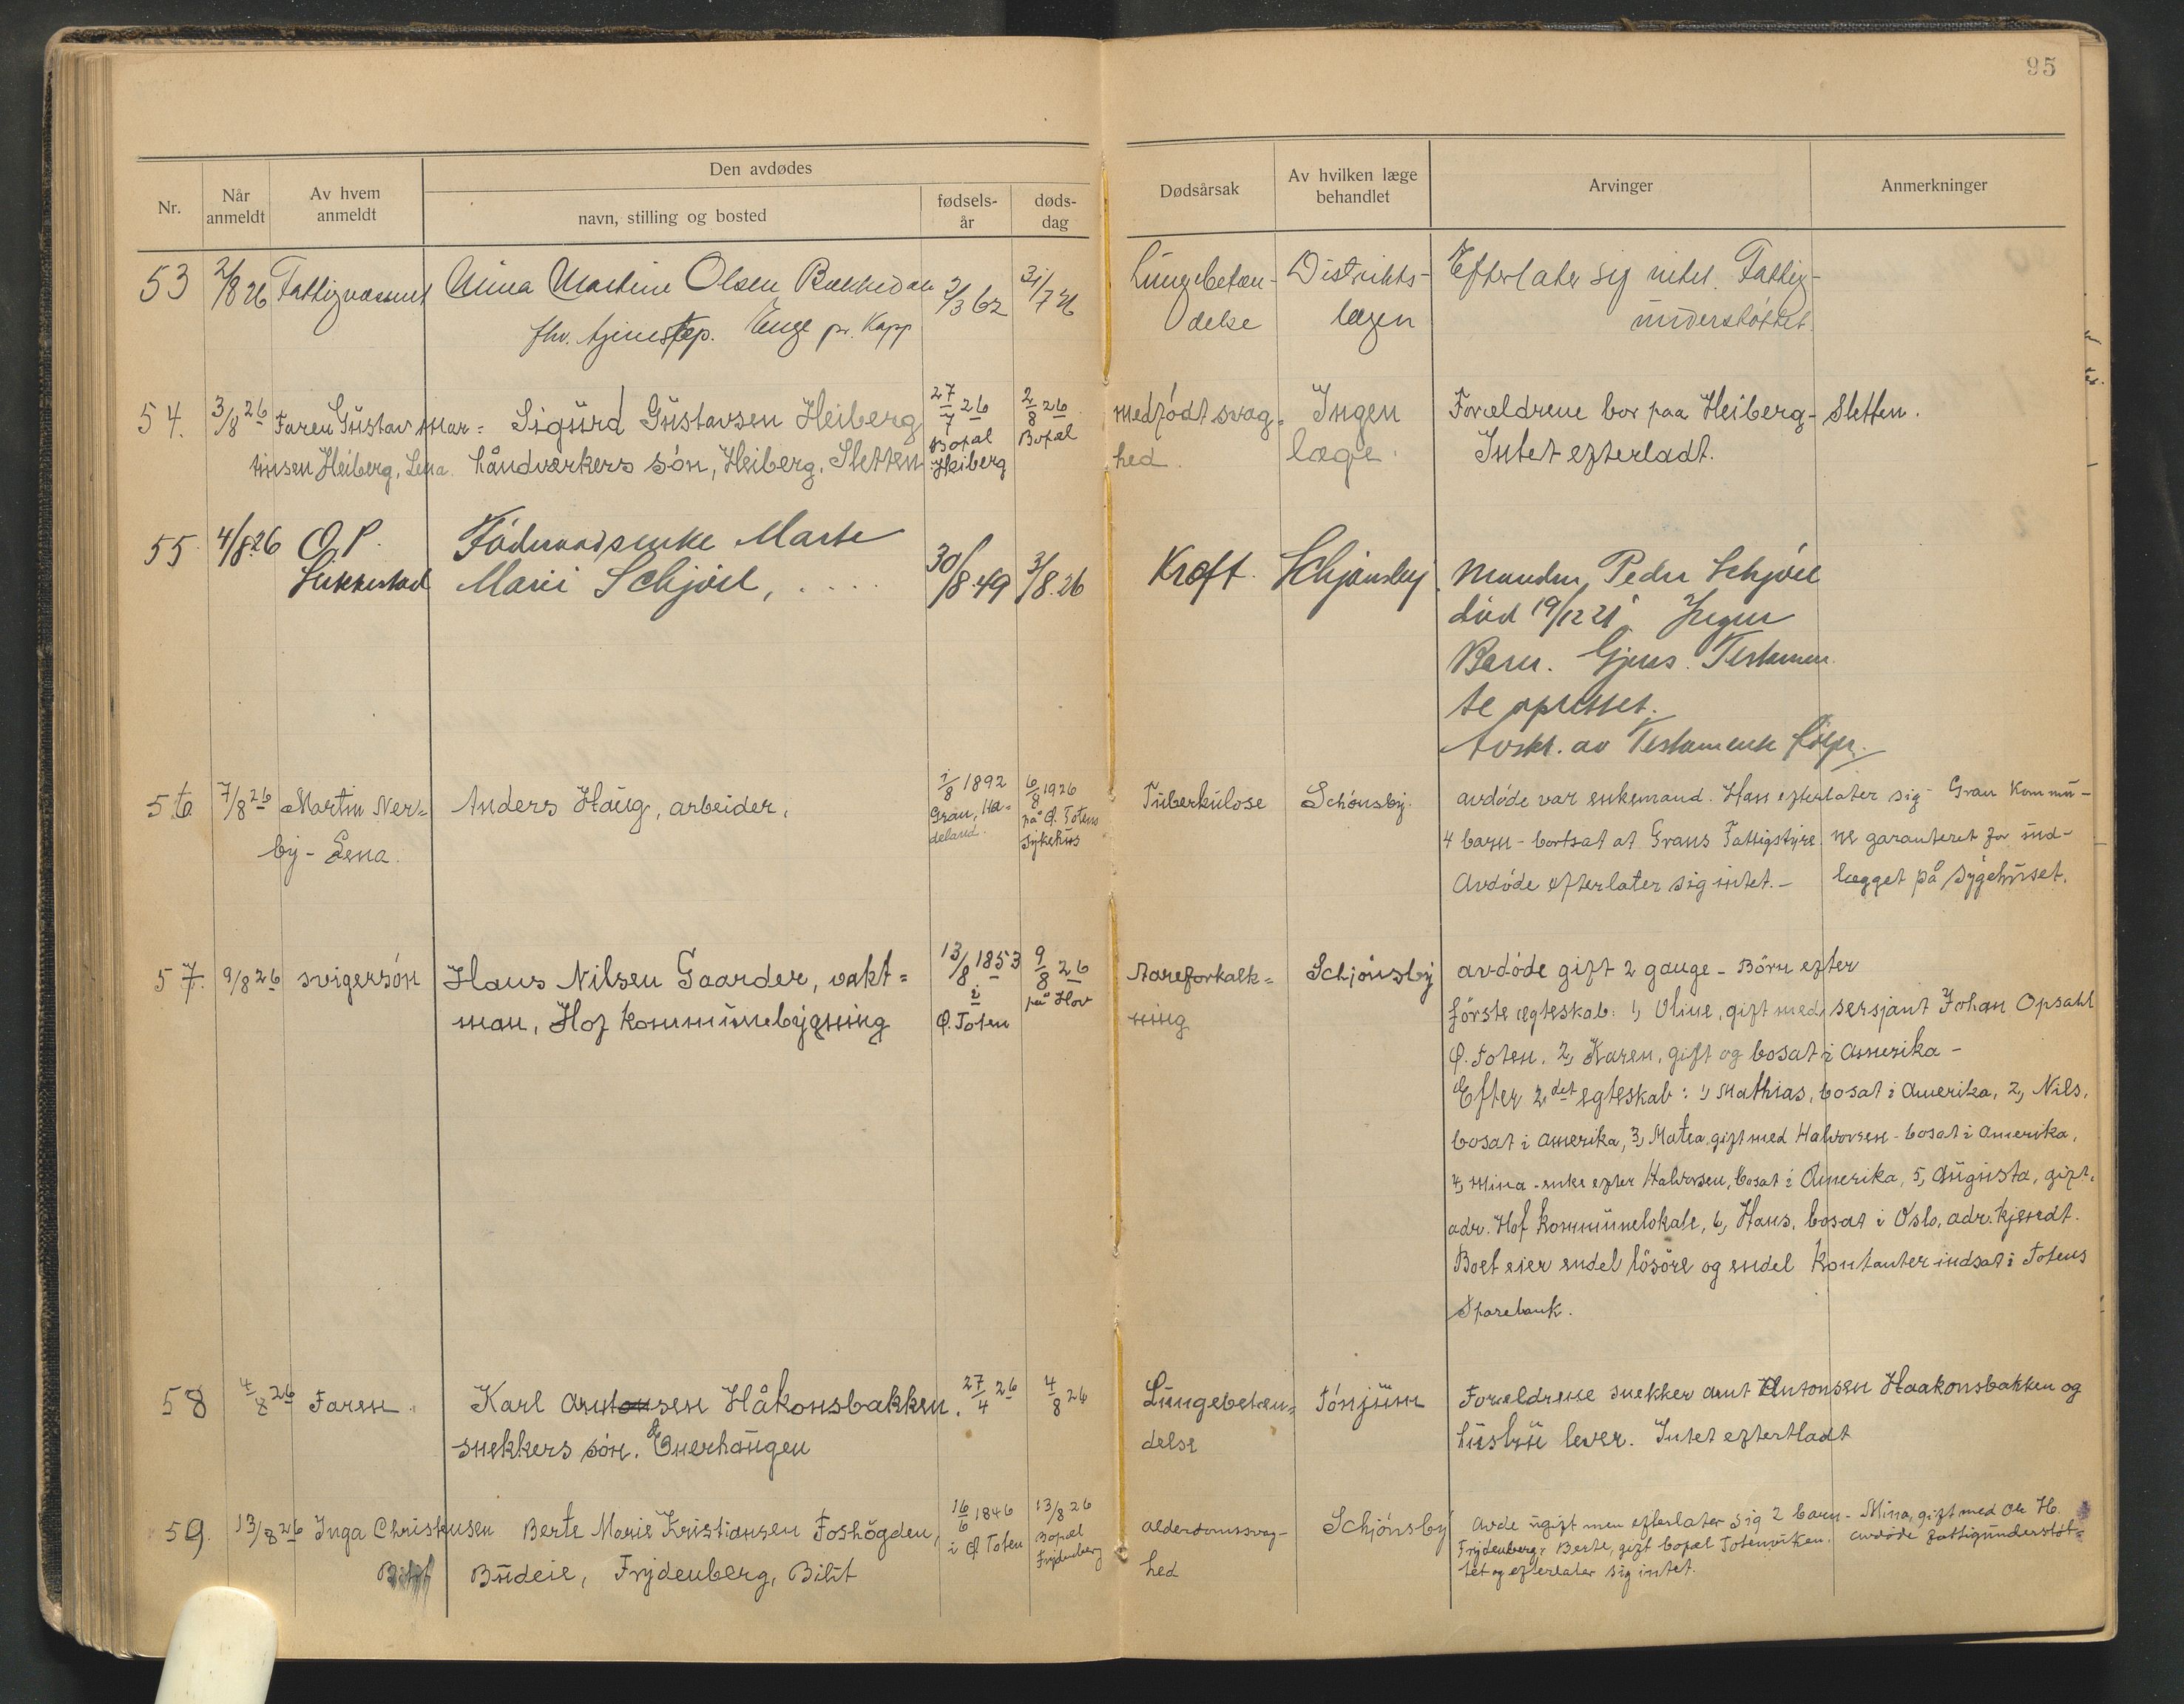 95
Nr.
Når anmeldt
Av hvem anmeldt
Den avdødes
navn, stilling og bosted
fødsels-år
døds-dag
Dødsårsak
Av hvilken læge behandlet
Arvinger
Anmerkninger
53 2/8 26 Fattigvæsenet Martine Olsen 2/3 62 31/7 26 Lungebetæn- Distrikts- Efterlater sig intet. Fattig-
fhv. Enge pr. Kapp delse lægen understøttet.
54. 3/8 26 Faren Gustav Mar= Sigurd Gustavsen Heiberg 27/7 26 2/8 26 medfødt svag= Ingen Forældrene bor paa Heiberg- Sletten.
tinsen Heiberg, Lena. håndværkers søn, Heiberg, Sletten Bopæl Heiberg Bopæl hed. læge. Intet efterladt.
55. 4/8.26 O.P. Føderaadsenke Marte
Marie Schjøll, .... 30/8.49 3/8.26 Kræft. Schjønsby Manden, Peder Schjøll
død 19/12 21. Ingen
Barn. Gjens. Testamen
te oprettet.
Avskr. av Testamente følger.
56 7/8 26 Martin Ner= Anders Haug, arbeider. 1/8 1892 6/8 1926 Tuberkulose Schønsby. avdøde var enkemand. Han efterlater sig - Gran Kommu-
by - Lena. Gran, Ha=deland. på Ø. Totens sykehus 4 barn - bortsat at Grans Fattigstyre. ne garanteret for ind-
Avdøde efterlater sig intet. - lægget på sygehuset.
57. 9/8 26 svigersøn Hans Nilsen Gaarder, vakt= 13/8 1853 9/8 26 Aareforkalk= Schjønsby avdøde gift 2 gange - Børn efter
man, Hof kommunebygning i Ø. Toten på Hov ning første ægteskab: 1, Oline, gift med sersjant Johan Opsahl
Ø. Toten. 2, Karen, gift og bosat i Amerika -
Efter 2det egteskab: 1, Mathias, bosat i Amerika, 2, Nils,
bosat i Amerika, 3, Matea, gift med Halvorsen - bosat i Amerika,
4, Mina - enke efter Halvorsen, bosat i Amerika, 5, Augusta, gift,
adr. Hof kommunelokale, 6, Hans, bosat i Oslo, adr. kjendt.
Boet eier endel løsøre og endel kontanter indsat i Totens
Sparebank.
58 4/8 26 Faren. Karl Arntonsen Håkonsbakken. 27/4 26 4/8 26 Lungebetæn= Tønjum Forældrene snekker Arnt Antonsen Haakonsbakken og
snekkers søn. Enerhaugen delse hustru lever. Intet eftertladt
59. 13/8 26 Inga Christensen Berte Marie Kristiansen Foshøgden, 16/6 1846 13/8 26 alderdomssvag- Schjønsby Avde ugift men efterlater sig 2 barn - Mina, gift med Ole H.
Bilit Budeie, Frydenberg, Bilit i Ø. Toten Bopæl Frydenberg hed Frydenberg, Berte, gift bopæl Totenviken. avdøde fattigunderstøt=
tet og efterlater sig intet.